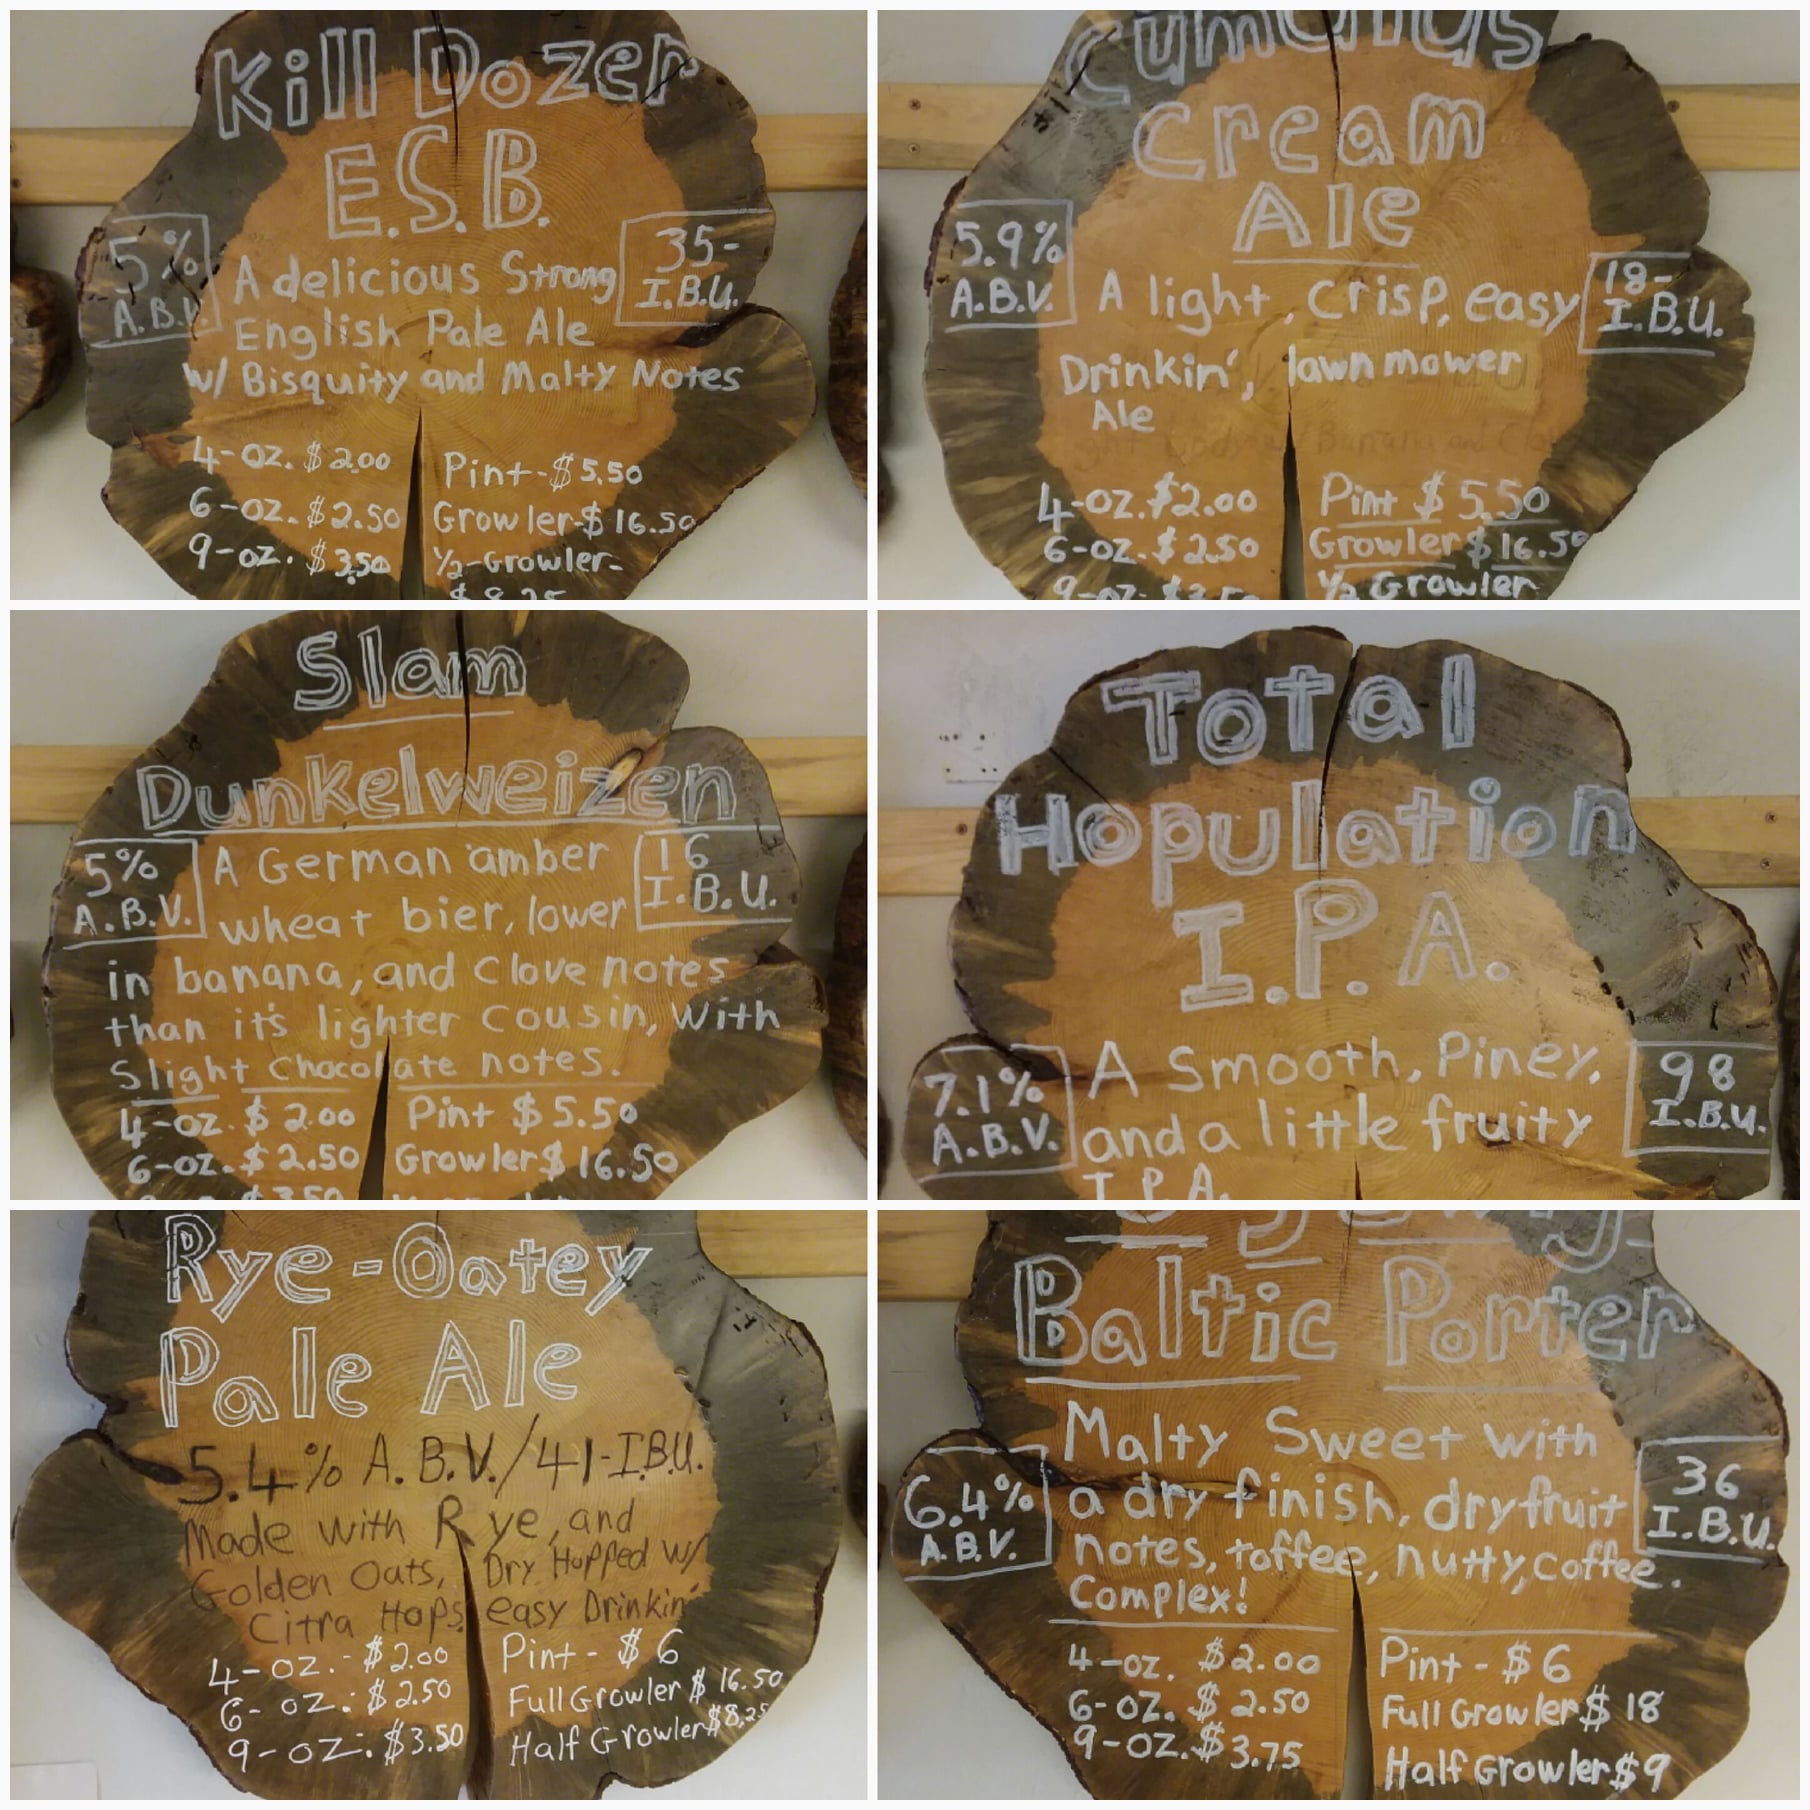 Kill Dozer
E.S.B.
5%
A.B.V.
35-
I.B.U.
A delicious Strong
English Pale Ale
w/ Bisquity and Malty Notes
4-oz. $2.00
6-oz. $2.50
9-oz. $3.50
Pint-$5.50
Growler-$16.50
1/2-Growler-
$8.25
Cumulus
Cream
Ale
5.9%
A.B.V.
18-
I.B.U.
A light, crisp, easy
Drinkin', lawnmower
Ale
4-oz. $2.00
6-oz. $2.50
9-oz. $3.50
Pint $5.50
Growler $16.50
1/2 Growler
Slam
Dunkelweizen
5%
A.B.V.
16
I.B.U.
A German amber
wheat bier, lower
in banana, and Clove notes
than it's lighter cousin, with
Slight Chocolate notes.
4-oz. $2.00
6-oz. $2.50
$3.50
Pint $5.50
Growler $16.50
Total
Hopulation
I.P.A.
7.1%
A.B.V.
98
I.B.U.
A Smooth, Piney,
and a little fruity
I.P.A.
Rye-Oatey
Pale Ale
5.4% A.B.V./41-I.B.U.
Made with Rye, and
Golden Oats, Dry Hopped w/
Citra Hops easy Drinkin'
4-oz.- $2.00
6-oz: $2.50
9-oz: $3.50
Pint- $6
Full Growler $16.50
Half Growler $8.25
Baltic Porter
6.4%
A.B.V.
36
I.B.U.
Malty Sweet with
a dry finish, dryfruit
notes, toffee, nutty, coffee.
Complex!
4-oz. $2.00
6-oz. $2.50
9-oz. $3.75
Pint-$6
Full Growler $18
Half Growler $9